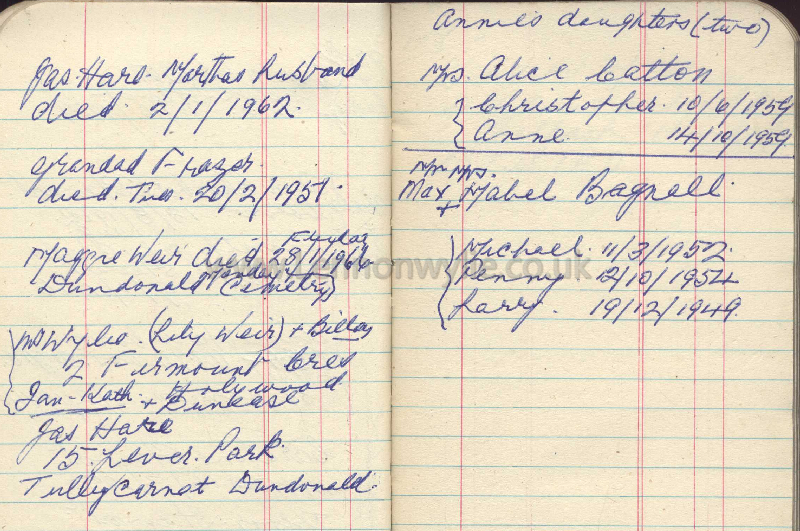 Jas. Hare. Marthas husband
died. 2/1/1962.
Grandad Frazer.
died. Tues. 20/2/1951.
Friday
Maggie Weir died 28/1/1966
Monday
Dundonald (Cemetry)
Mrs Wylie. (Lily Weir) + Billy
2 Firmount Cres
Jan - Kath. Holywood
+
Jas Hare
15. Lever. Park.
Tullycarnet Dundonald.
Annie's daughters (two)
Mrs. Alice Catton
Christopher. 10/6/1959
Anne. 14/10/1959
Mr Mrs.
Max + Mabel Bagnell.
Michael. 11/3/1952.
Penny 12/10/1954
Larry. 19/12/1949.